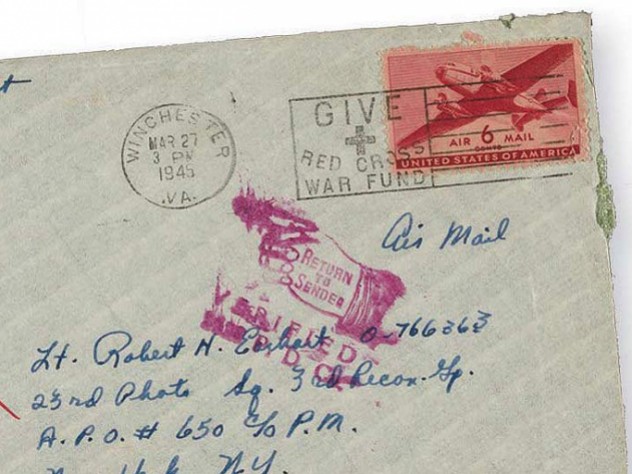 WINCHESTER
MAR 27
3 PM
1945
VA.
GIVE
RED CROSS
WAR FUND
AIR 6 MAIL
CENTS
UNITED STATES OF AMERICA
Air Mail
RETURN
TO
SENDER
VERIFIED
Lt. Robert H. Earhart O-766363
23rd Photo Sq. 3rd Recon. Gp.
A.P.O. # 650 C/o P.M.
New York, N.Y.